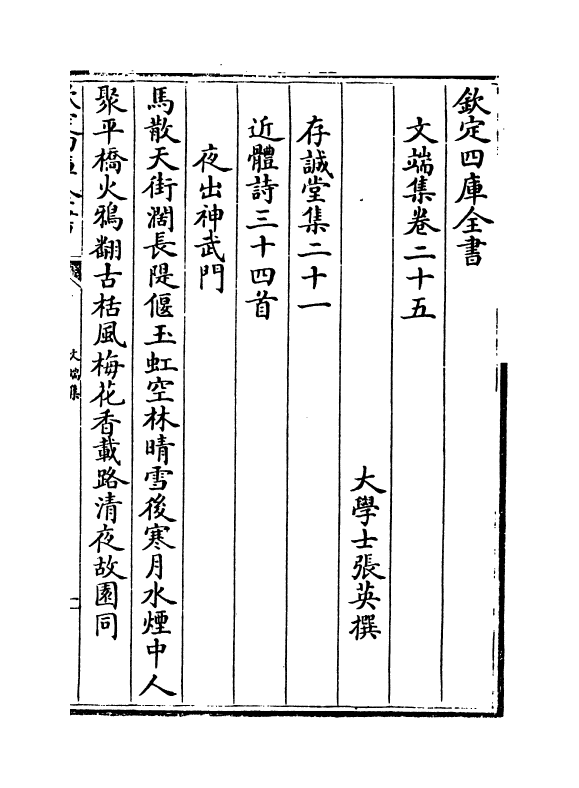 欽定四庫全書
文端集卷二十五
大學士張英撰
存誠堂集二十一
近體詩三十四首
夜出神武門
馬散天街濶長隄偃玉虹空林晴雪後寒月水煙中人
聚平橋火鴉翻古栝風梅花香載路清夜故園同
文端集